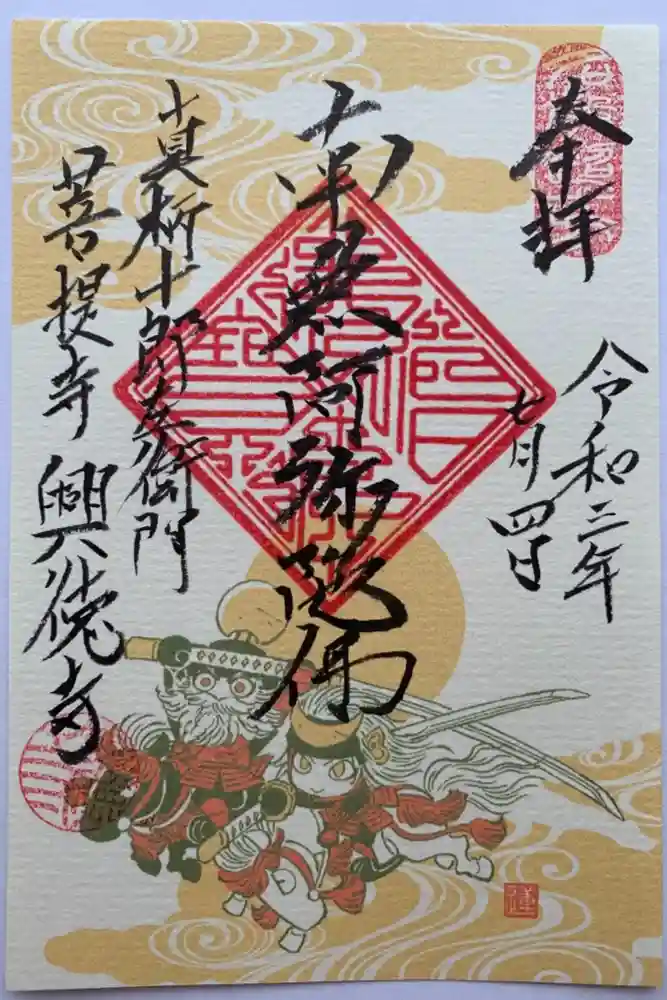 奉拝
令和三年
七月四日
南無阿弥陀佛
真柄十郎左衛門
菩提寺 興徳寺